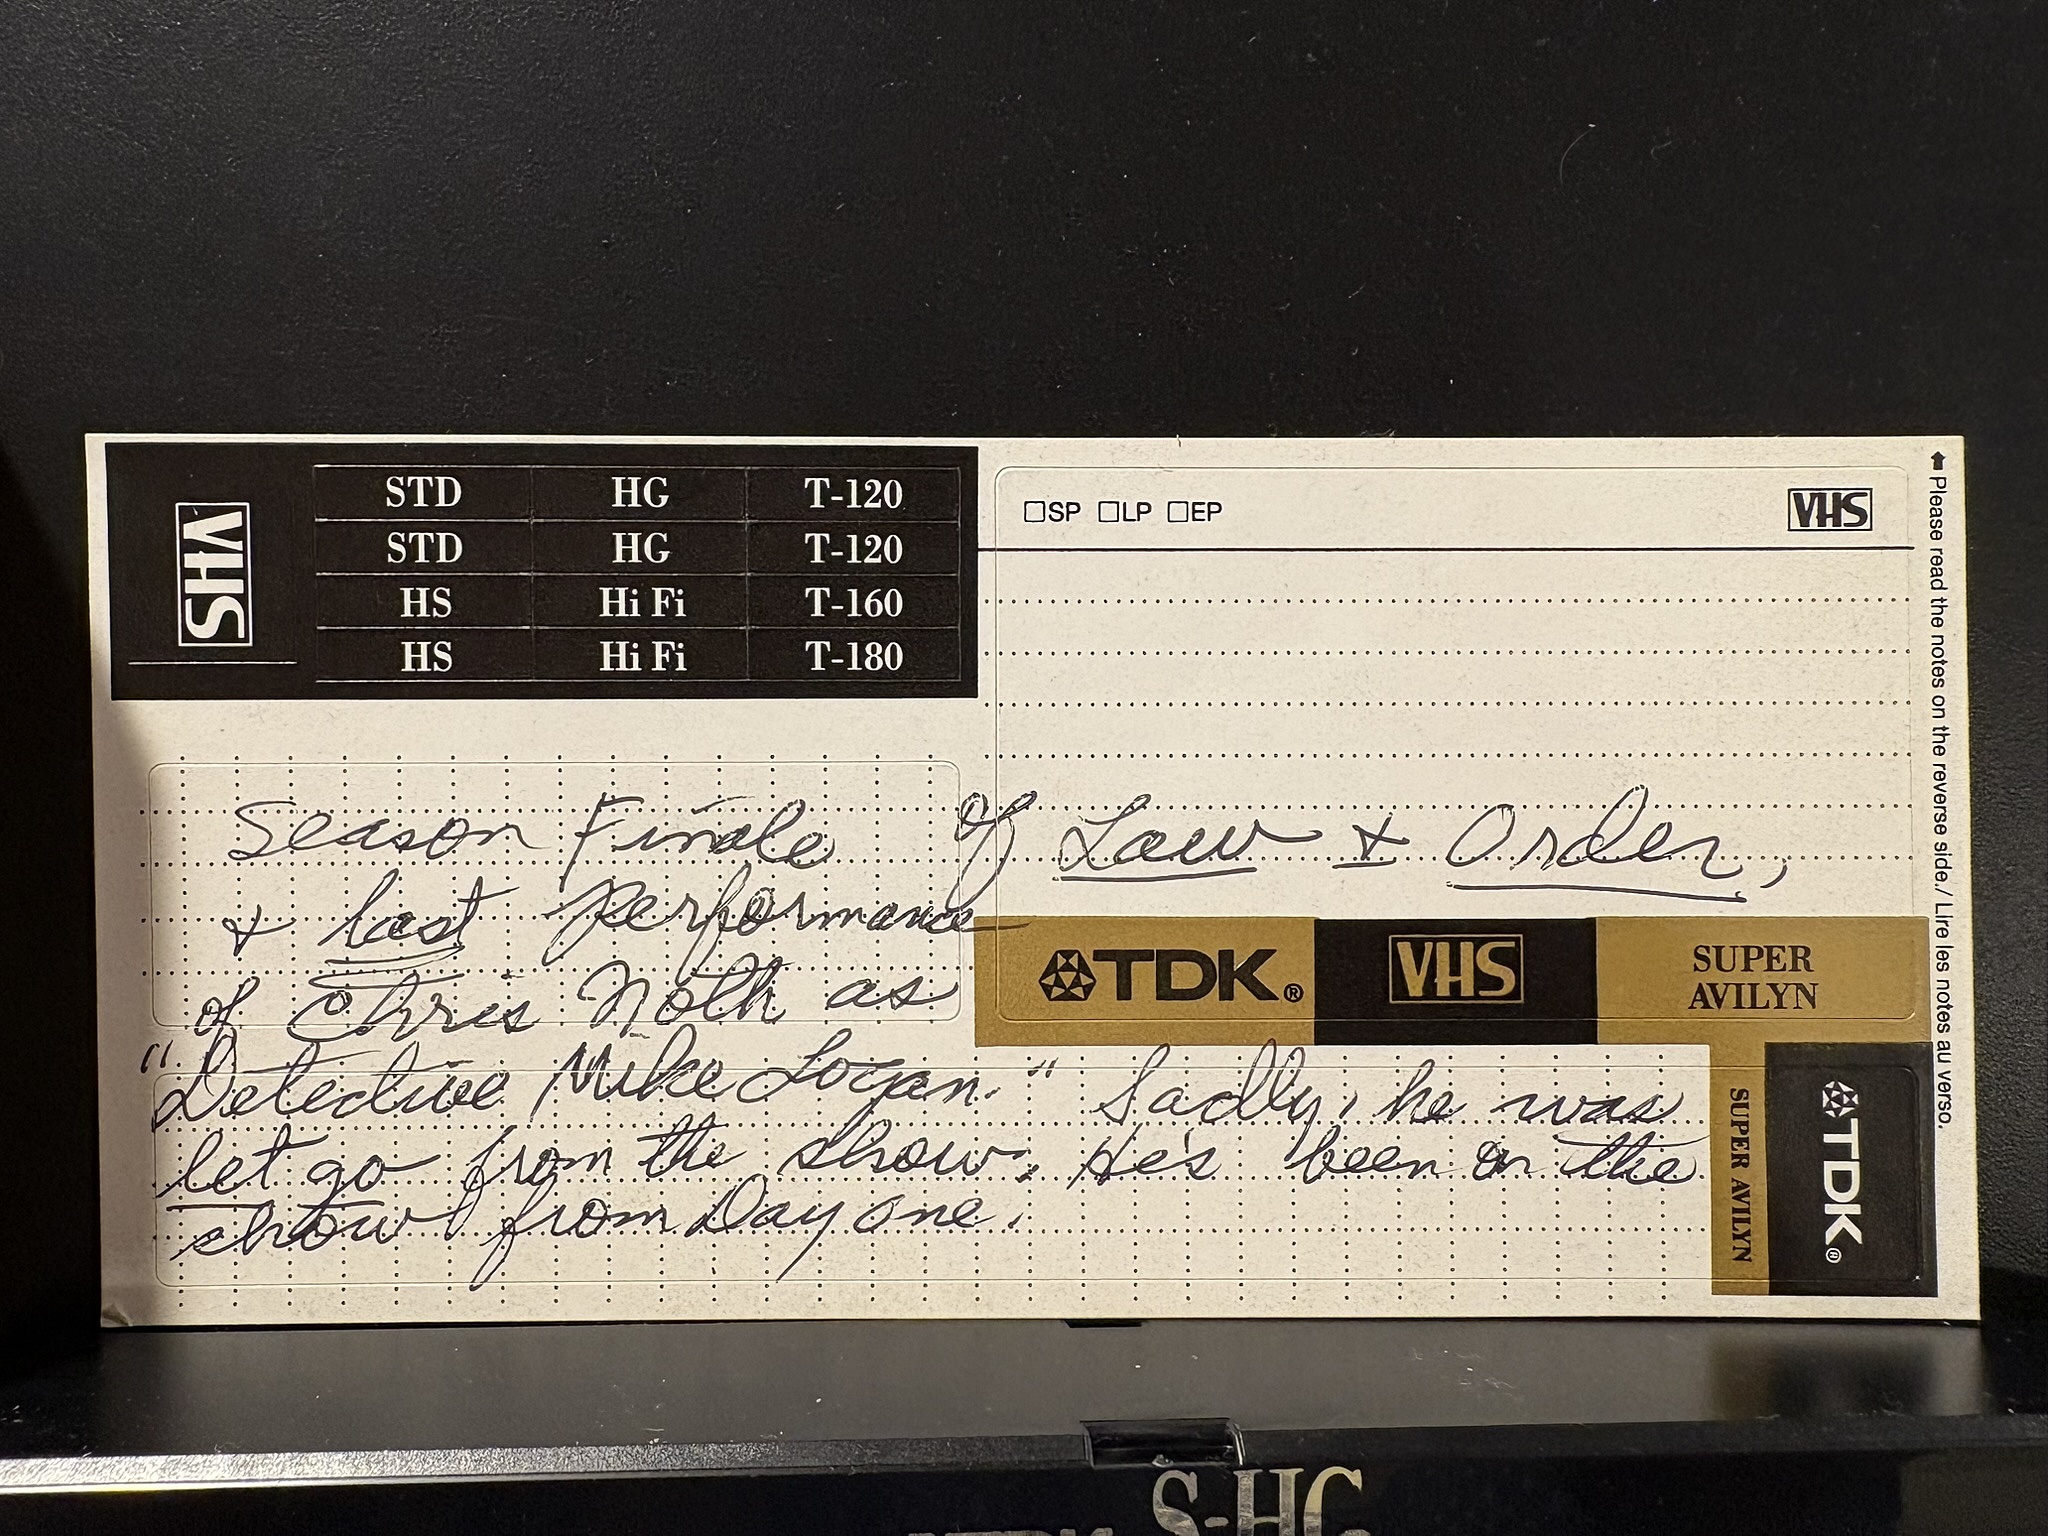 VHS
STD HG T-120
STD HG T-120
HS Hi Fi T-160
HS Hi Fi T-180
□SP □LP □EP
VHS
Please read the notes on the reverse side./ Lire les notes au verso.
Season Finale of Law & Order,
& last performance
of Chris Noth as
"Detective Mike Logan." Sadly, he was
let go from the show. He's been on the
show from Day one.
TDK® VHS SUPER
AVILYN
SUPER AVILYN
TDK®
S-HG
TDK